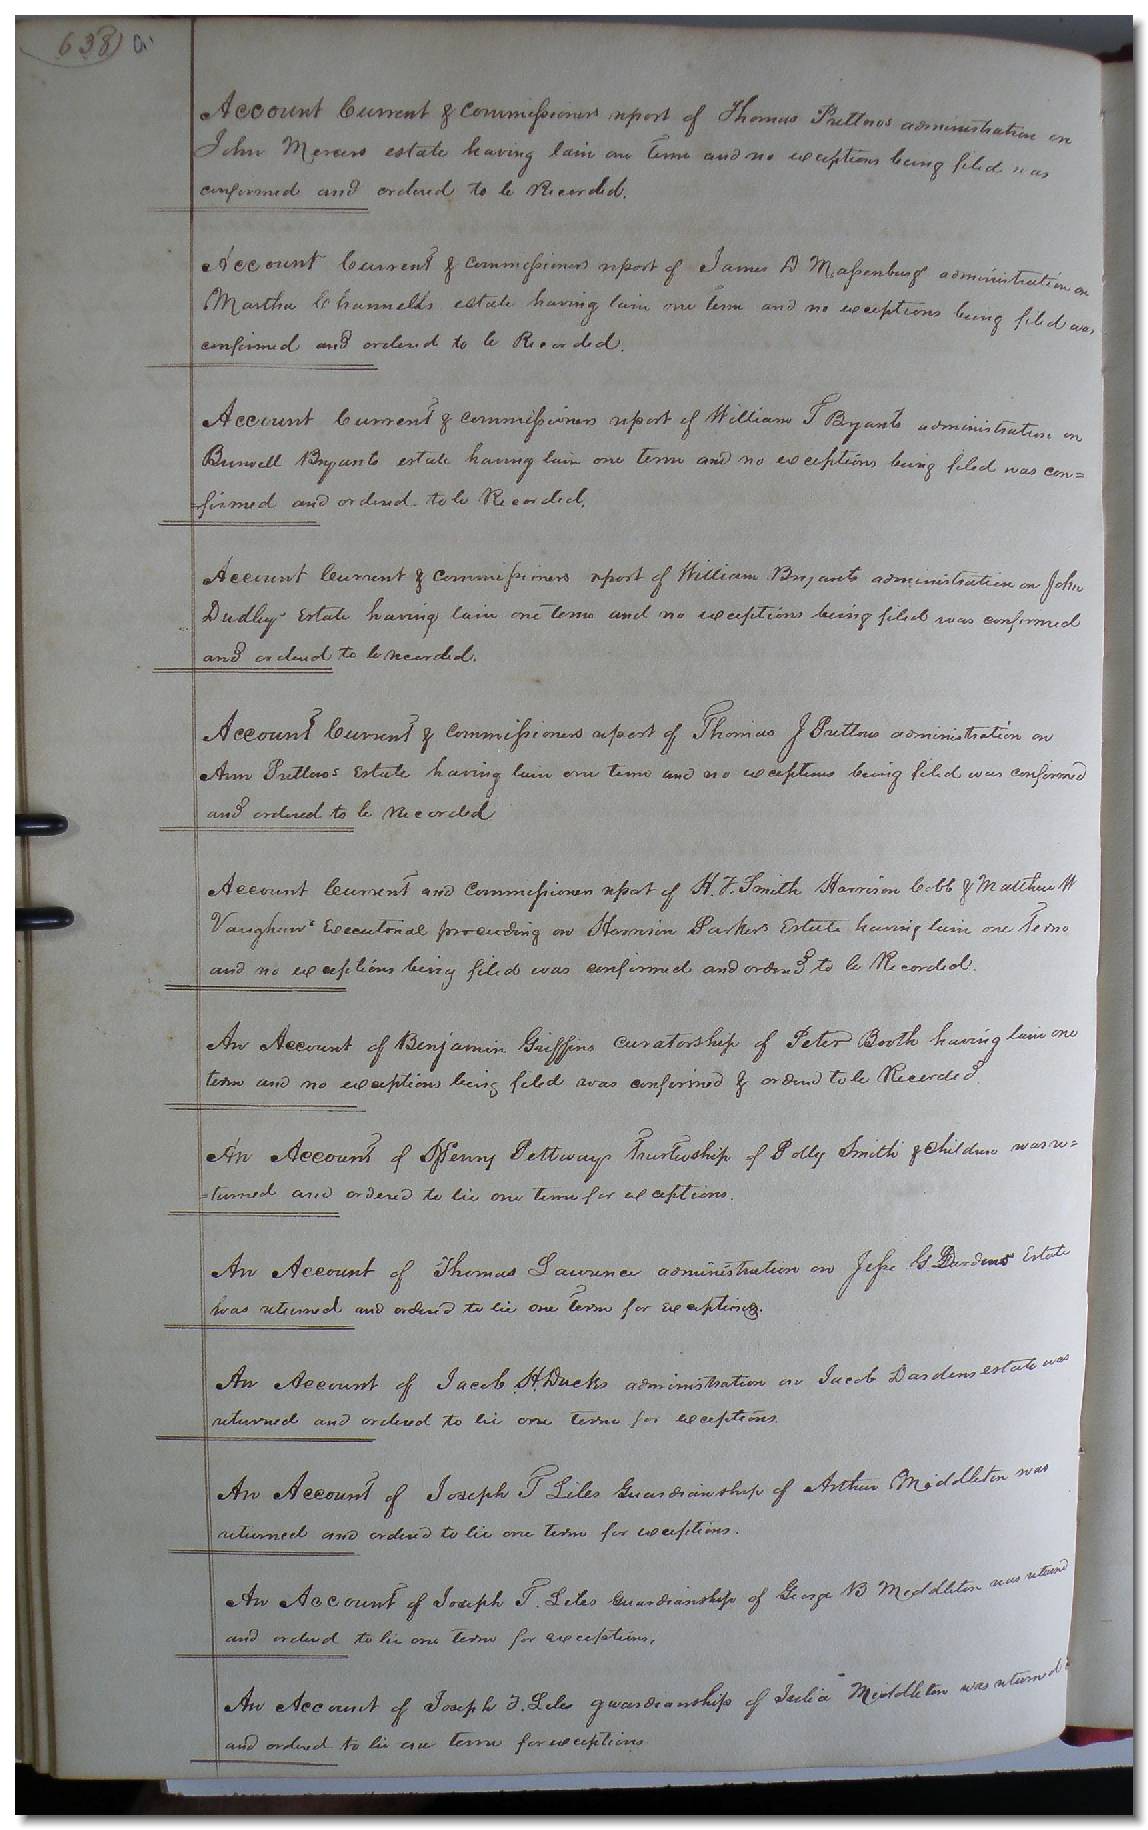 638)
Account Current & Commissioners report of Thomas Pretlows administration on
John Mercers estate having lain one Term and no exceptions being filed was
confirmed and ordered to be Recorded.
Account Current & Commissioners report of James D Massenburg administration on
Martha Channells estate having lain one Term and no exceptions being filed was
confirmed and ordered to be Recorded.
Account Current & Commissioners report of William T Bryants administration on
Burwell Bryants estate having lain one term and no exceptions being filed was con=
=firmed and ordered to be Recorded.
Account Current & Commissioners report of William Bryants administration on John
Dudleys Estate having lain one term and no exceptions being filed was confirmed
and ordered to be recorded.
Account Current & Commissioners report of Thomas J Pretlow administration on
Ann Pretlows Estate having lain one term and no exceptions being filed was confirmed
and ordered to be Recorded
Account Current and Commissioners report of H. F. Smith Harrison Cobb & Matthew W
Vaughans Executorial proceeding on Harrison Parkers Estate having lain one Term
and no exceptions being filed was confirmed and ordered to be Recorded.
An Account of Benjamin Griffins Curatorship of Peter Booth having lain one
term and no exceptions being filed was confirmed & ordered to be Recorded.
An Account of Henry Pettways Trusteeship of Polly Smith & children was re=
=turned and ordered to lie one term for exceptions.
An Account of Thomas Lawrence administration on Jesse G Dardens Estate
was returned and ordered to lie one Term for exceptions.
An Account of Jacob H. Ducks administration on Jacob Dardens estate was
returned and ordered to lie one term for exceptions.
An Account of Joseph T Liles Guardianship of Arthur Middleton was
returned and ordered to lie one term for exceptions.
An Account of Joseph T. Liles Guardianship of George B Middleton was returned
and ordered to lie one term for exceptions.
An Account of Joseph T. Liles guardianship of Julia Middleton was returned
and ordered to lie one term for exceptions